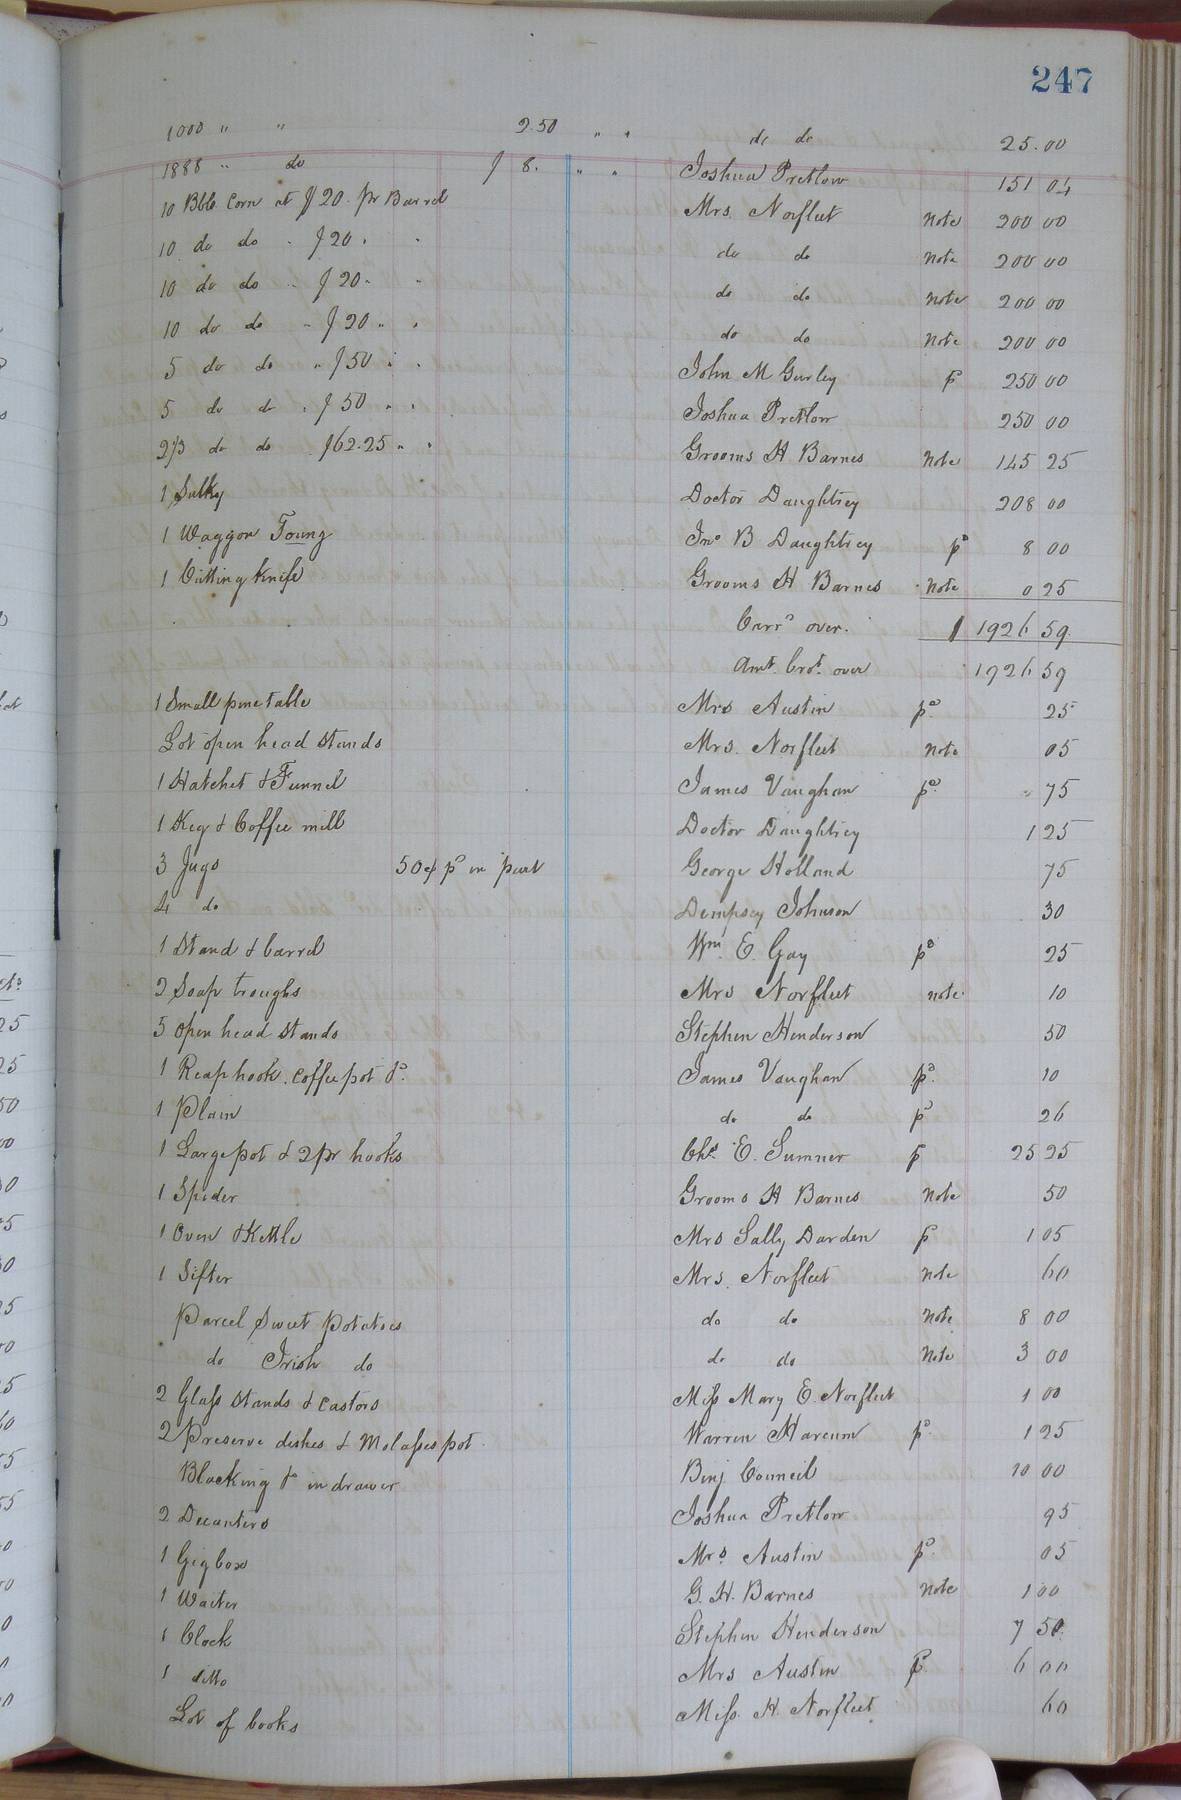 247
1000 " " 2.50 " " do do 25.00
1888 " do $ 8. " " Joshua Pretlow 151 04
10 Bbls Corn at $20. pr Barrel Mrs. Norfleet note 200 00
10 do do " $20. " do do note 200 00
10 do do " $20 " " do do note 200 00
10 do do " $20 " " do do note 200 00
5 do do " $50 " " John M Gurley p 250 00
5 do do " $50 " " Joshua Pretlow 250 00
2 1/3 do do $62.25 " " Grooms H Barnes note 145 25
1 Sulky Doctor Daughtrey 208 00
1 Waggon Toung Jno B Daughtrey pd 8 00
1 Cutting knife Grooms H Barnes note 0 25
Carrd over. $ 1926 59
Amt. brot. over 1926 59
1 Small pine table Mrs Austin pd. 25
Lot open head stands Mrs. Norfleet note 05
1 Hatchet & Funnel James Vaughan pd. 75
1 Keg & Coffee mill Doctor Daughtrey 1 25
3 Jugs 50¢ pd in part George Holland 75
4 do Dempsey Johnson 30
1 Stand & barrel Wm. E. Gay pd 25
2 Soap troughs Mrs Norfleet note 10
5 open head stands Stephen Henderson 50
1 Reaphook. coffeepot &c. James Vaughan pd. 10
1 Plain do do pd 26
1 Large pot & 2 pr hooks Chs. E. Sumner p 25 25
1 Spider Grooms H Barnes note 50
1 Oven & Kettle Mrs Sally Darden p 1 05
1 Sifter Mrs. Norfleet note 60
Parcel Sweet Potatoes do do note 8 00
do Irish do do do note 3 00
2 Glass stands & castors Miss Mary E. Norfleet 1 00
2 Preserve dishes & Molasses pot. Warren Harcum pd. 1 25
Blacking &c in drawer Benj Council 10 00
2 Decanters Joshua Pretlow 95
1 Gigbox Mrs. Austin pd. 05
1 Waiter G. H. Barnes note 1 00
1 Clock Stephen Henderson 7 50
1 ditto Mrs Austin p 6 00
Lot of books Miss. H. Norfleet 60